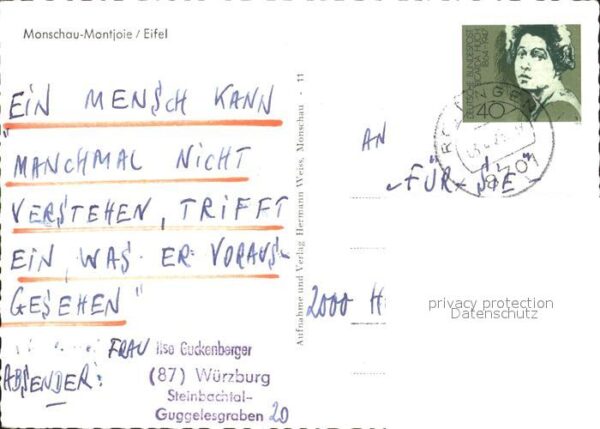 Monschau-Montjoie / Eifel
"EIN MENSCH KANN
MANCHMAL NICHT
VERSTEHEN, TRIFFT
EIN, WAS ER VORAUS-
GESEHEN"
FRAU Ilse Guckenberger
ABSENDER:
(87) Würzburg
Steinbachtal-
Guggelesgraben 20
Aufnahme und Verlag Hermann Weiss, Monschau - 11
DEUTSCHE BUNDESPOST
RICARDA HUCH
1864-1947
40
8701
AN
"FÜR SIE"
2000 H
privacy protection
Datenschutz